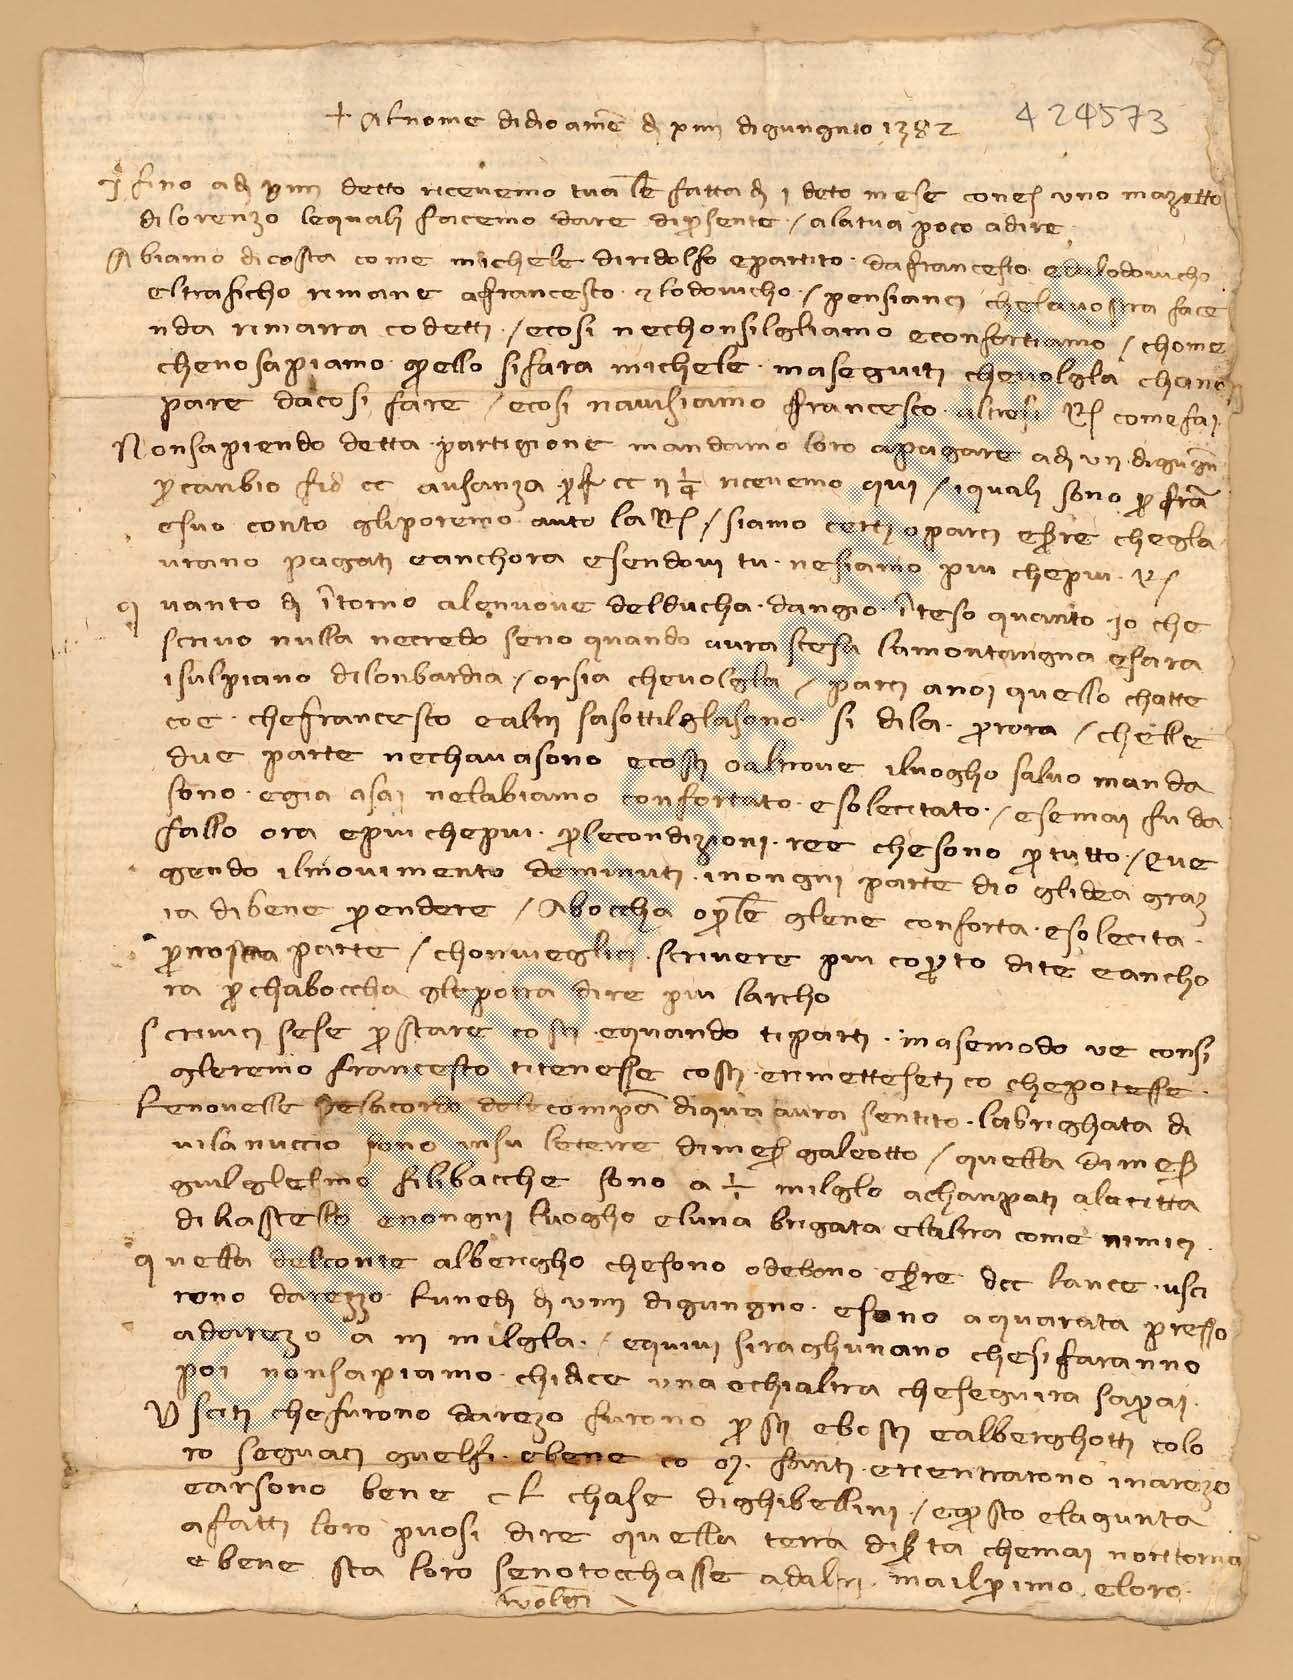 + Al nome di dio amē dj viiij digungnio 1382
424573
fino adj viiij detto ricevemo tua lē fatta dj j deto mese con es uno mazetto
di lorenzo lequalj facemo dare dipsente / alatua poco adire
Abiamo dicosta come michele diridolfo epartito · dafrancesco elodovicho
eltraficho rimane afrancesco · & lodovicho · / pensianci chelavostra face
nda rimarra codetti · / ecosi nechonsilgliamo econfortiamo / chome
chenosapiamo qello sifara michele · maseguiti chevolgla chanc
pare dacosi fare / ecosi navisiamo francesco altresi R comefai
Nonsapiendo detta · partigione mandamo loro apagare adj vij digugn
p canbio fio cc ausanza p f cc ij ¼ ricevemo qui / iquali sono p frā
esuo conto gliporemo auto la R / siamo certi oparci esere chegla
urano pagati eanchora esendovi tu · nesiamo piu chepiu · R
quanto dj itorno alenuove delducha · dangio · iteso quanto · jo che
scrivo nulla necredo seno quando avra scesa lamontangna esara
isulpiano dilonbardia / orsia chevolgla / parci anoi quello chatte
coe · chefrancesco ealtri sasottilglasono · si dila · prora / chelle
due parte nechavasono ecosti oaltrove iluogho salvo manda
sono · egia asai nelabiamo confortato · esolecitato · / esemai fu da
fallo ora epiu chepiu · plecondizioni · ree chesono ptutto · / Eve
gendo ilmovimento deminuti · inongni parte dio glidea graz
ia dibene prendere / Aboccha oplē glene conforta · esolecita ·
pnostra parte / chonvieglici · scrivere piu copto dite eancho
ra pchaboccha glepotra dire piu larcho
scrivici sese pstare costi · equando tiparti · masemodo ve consi
gleremo francesco titenesse costi erimetteseti co chepotesse ·
Lenovelle delacorte dele compā diqua avra sentito · labrighata di
vilanuccio sono insu leterre dimes galeotto / quella dimes
guilglelmo filibacche sono a ½ milglo achanpati alacitta
dikastello enongni luogho eluna brigata elaltra come nimici ·
quella delconte albericho chesono odebono esere dcc lance · usci
rono darezzo lunedj dj viiij digungno · esono aquarata presso
adarezo a iij milgla · / equivi siraghunano chesifaranno
poi nonsapiamo · chidice una echialtra cheseguira saprai ·
Usciti chefurono darezo furono psti ebosti ealberghotti colo
ro seguaci guelfi · ebene co fanti · erientrarono inarezo
earsono bene cl chase dighibellini / eqsto elagunta
afatti loro puosi dire quella terra disfta chemai nonttorna
ebene sta loro senotocchasse adaltri · mailprimo eloro